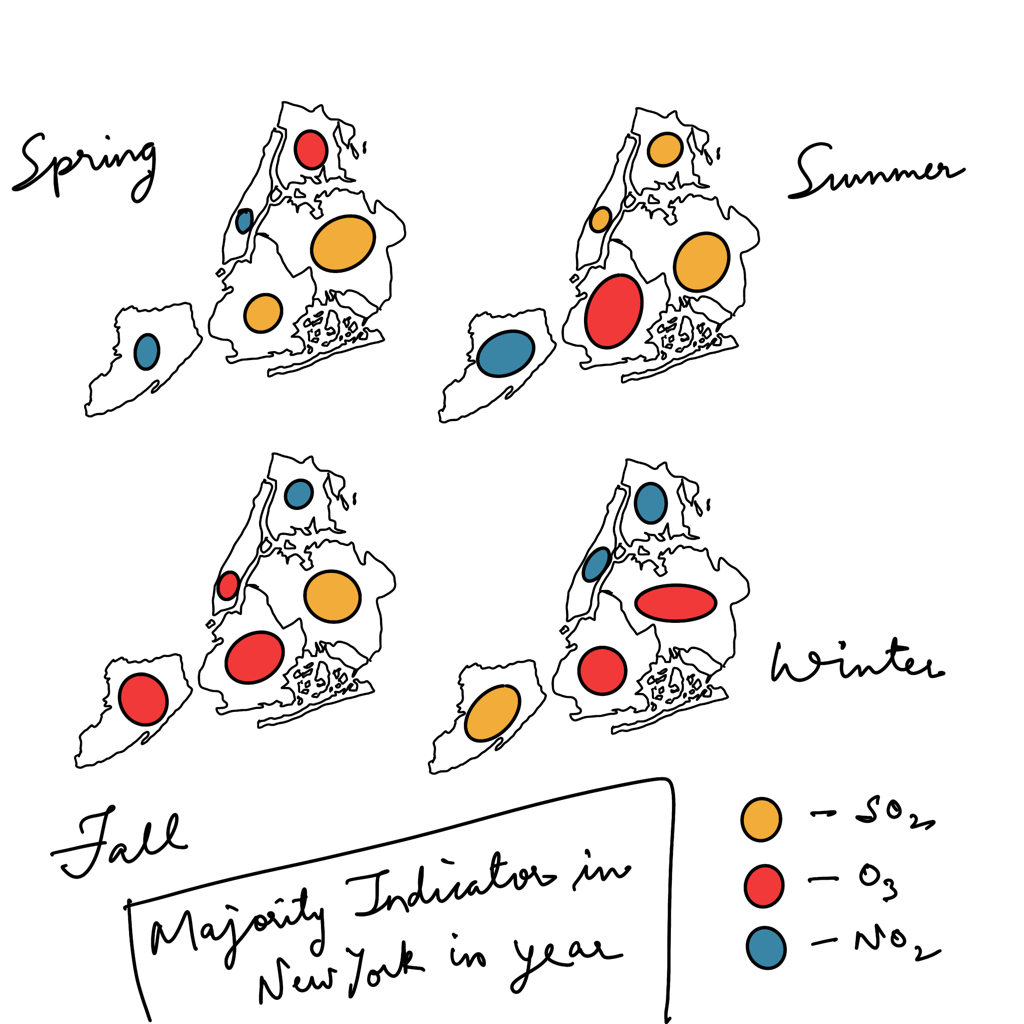 Spring
Summer
Winter
Fall
Majority Indicator in
New York in year
– SO₂
– O₃
– NO₂